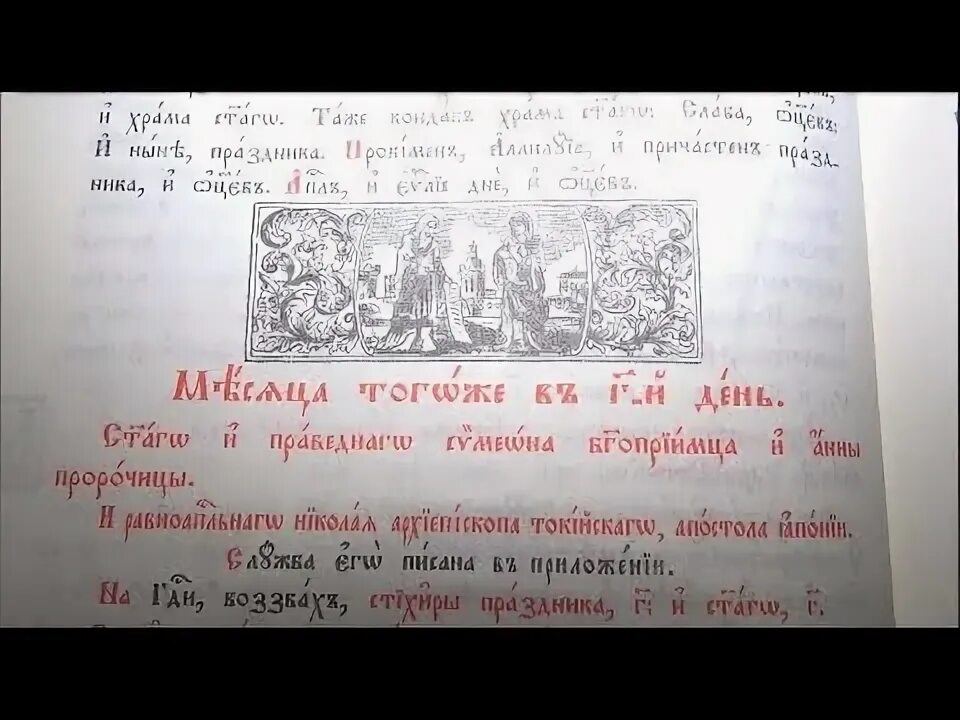 и҆ хра́ма ст҃а́гѡ. Та́же конда́къ хра́ма ст҃а́гѡ: Сла́ва, ѻ҆ц҃є́въ:
И҆ ны́нѣ, пра́здника. Проки́менъ, А҆ллилꙋ́їа, и҆ прича́стенъ пра́зд-
ника, и҆ ѻ҆ц҃є́въ. А҆п҃лъ, и҆ є҆ѵ҃лїе днѐ, и҆ ѻ҆ц҃є́въ.
Мѣ́сѧца тогѡ́же въ г҃.й де́нь.
Ст҃а́гѡ и҆ пра́веднагѡ сѷмеѡ́на бг҃опрїи́мца и҆ а҆́нны
проро́чицы.
И равноап҃льнагѡ нїкола́ѧ архїепі́скопа токі́йскагѡ, апо́стола ꙗ҆по́нїи.
Слꙋ́жба є҆гѡ̀ пи́сана въ приложе́нїи.
На Гд҃и, воззва́хъ, стїхи̑ры пра́здника, г҃: и҆ ст҃а́гѡ, г҃.